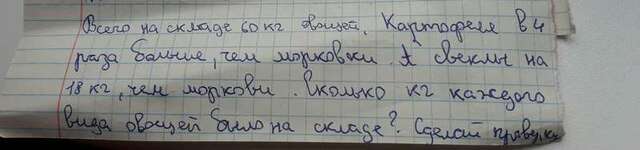 Всего на складе 60 кг овощей. Картофеля в 4
раза больше, чем моркови. А свеклы на
18 кг, чем моркови. Сколько кг каждого
вида овощей было на складе? Сделай проверку